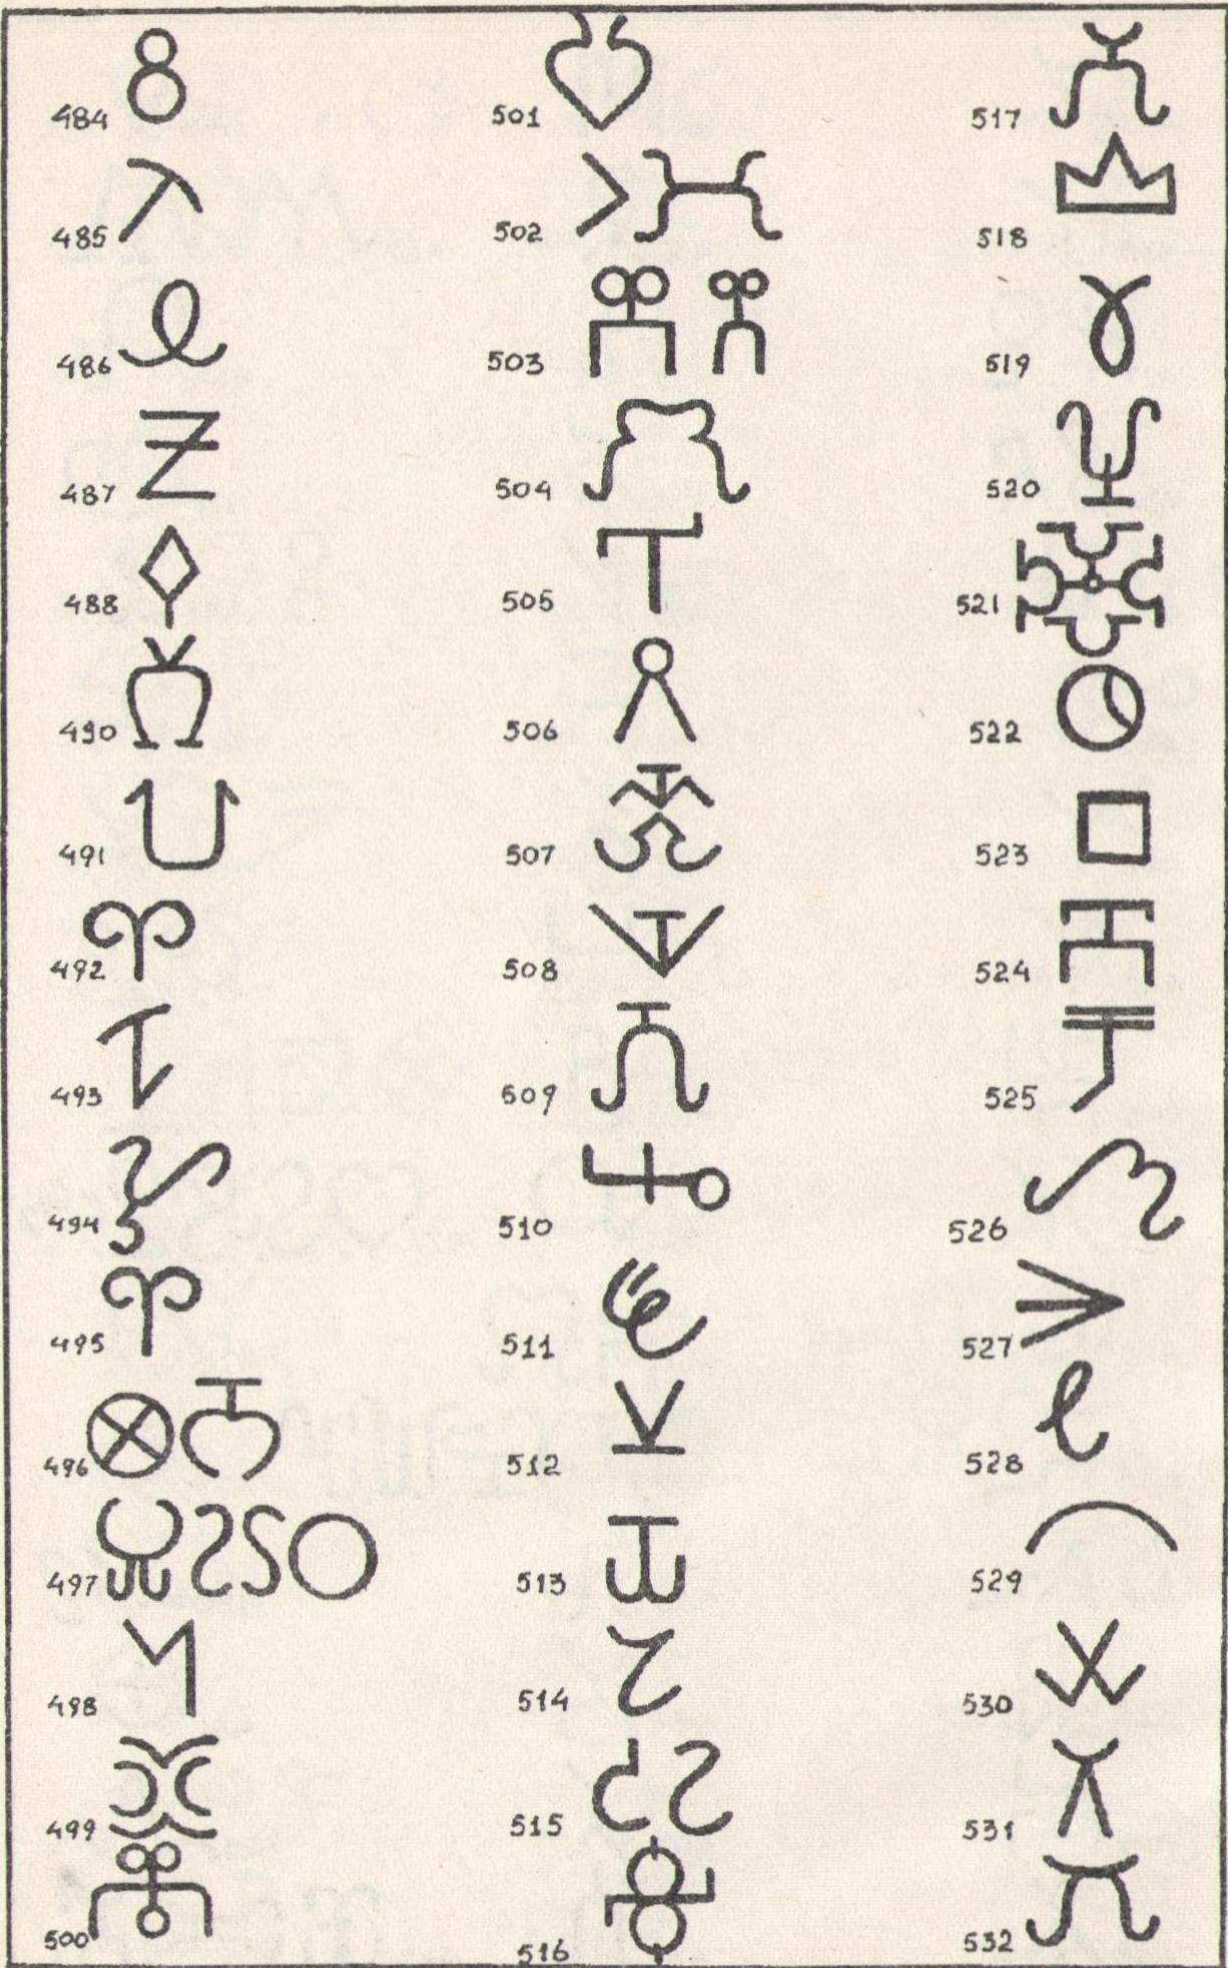 484
485
486
487
488
490
491
492
493
494
495
496
497
498
499
500
501
502
503
504
505
506
507
508
509
510
511
512
513
514
515
516
517
518
519
520
521
522
523
524
525
526
527
528
529
530
531
532